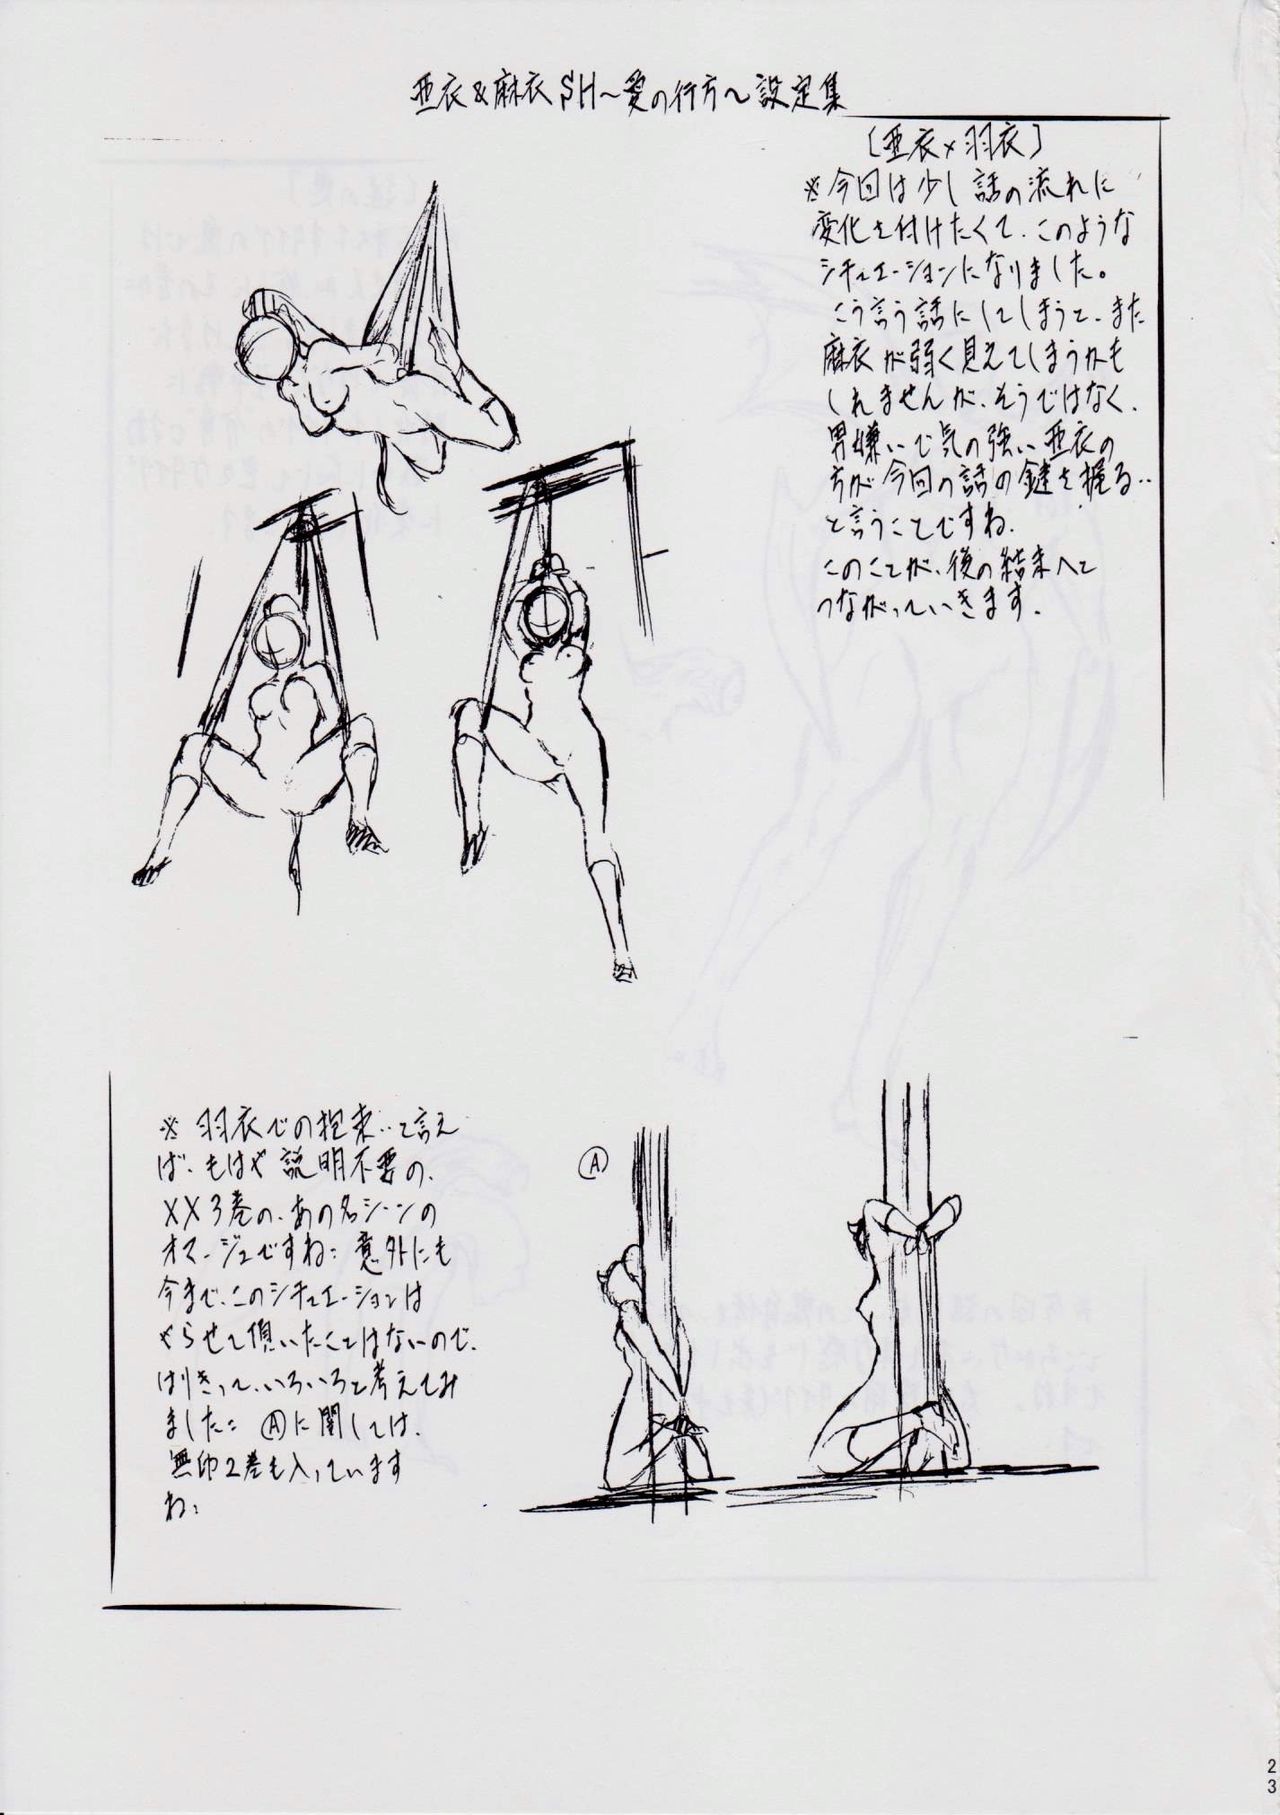 亜衣&麻衣SH～愛の行方～設定集
[亜衣×羽衣]
※今回は少し話の流れに
変化を付けたくて、このような
シチュエーションになりました。
こう言う話にしてしまうと、また
麻衣が弱く見えてしまうかも
しれませんが、そうではなく、
男嫌いで気の強い亜衣の
方が今回の話の鍵を握る‥
と言うことですね。
このことが、後の結末へと
つながっていきます。
※羽衣での拘束‥と言え
ば、もはや説明不要の、
XX3巻の、あの名シーンの
オマージュですね: 意外にも
今まで、このシチュエーションは
やらせて頂いたことはないので、
はりきって、いろいろと考えてみ
ました: Ⓐに関しては、
無印2巻も入っています
ね:
Ⓐ
23